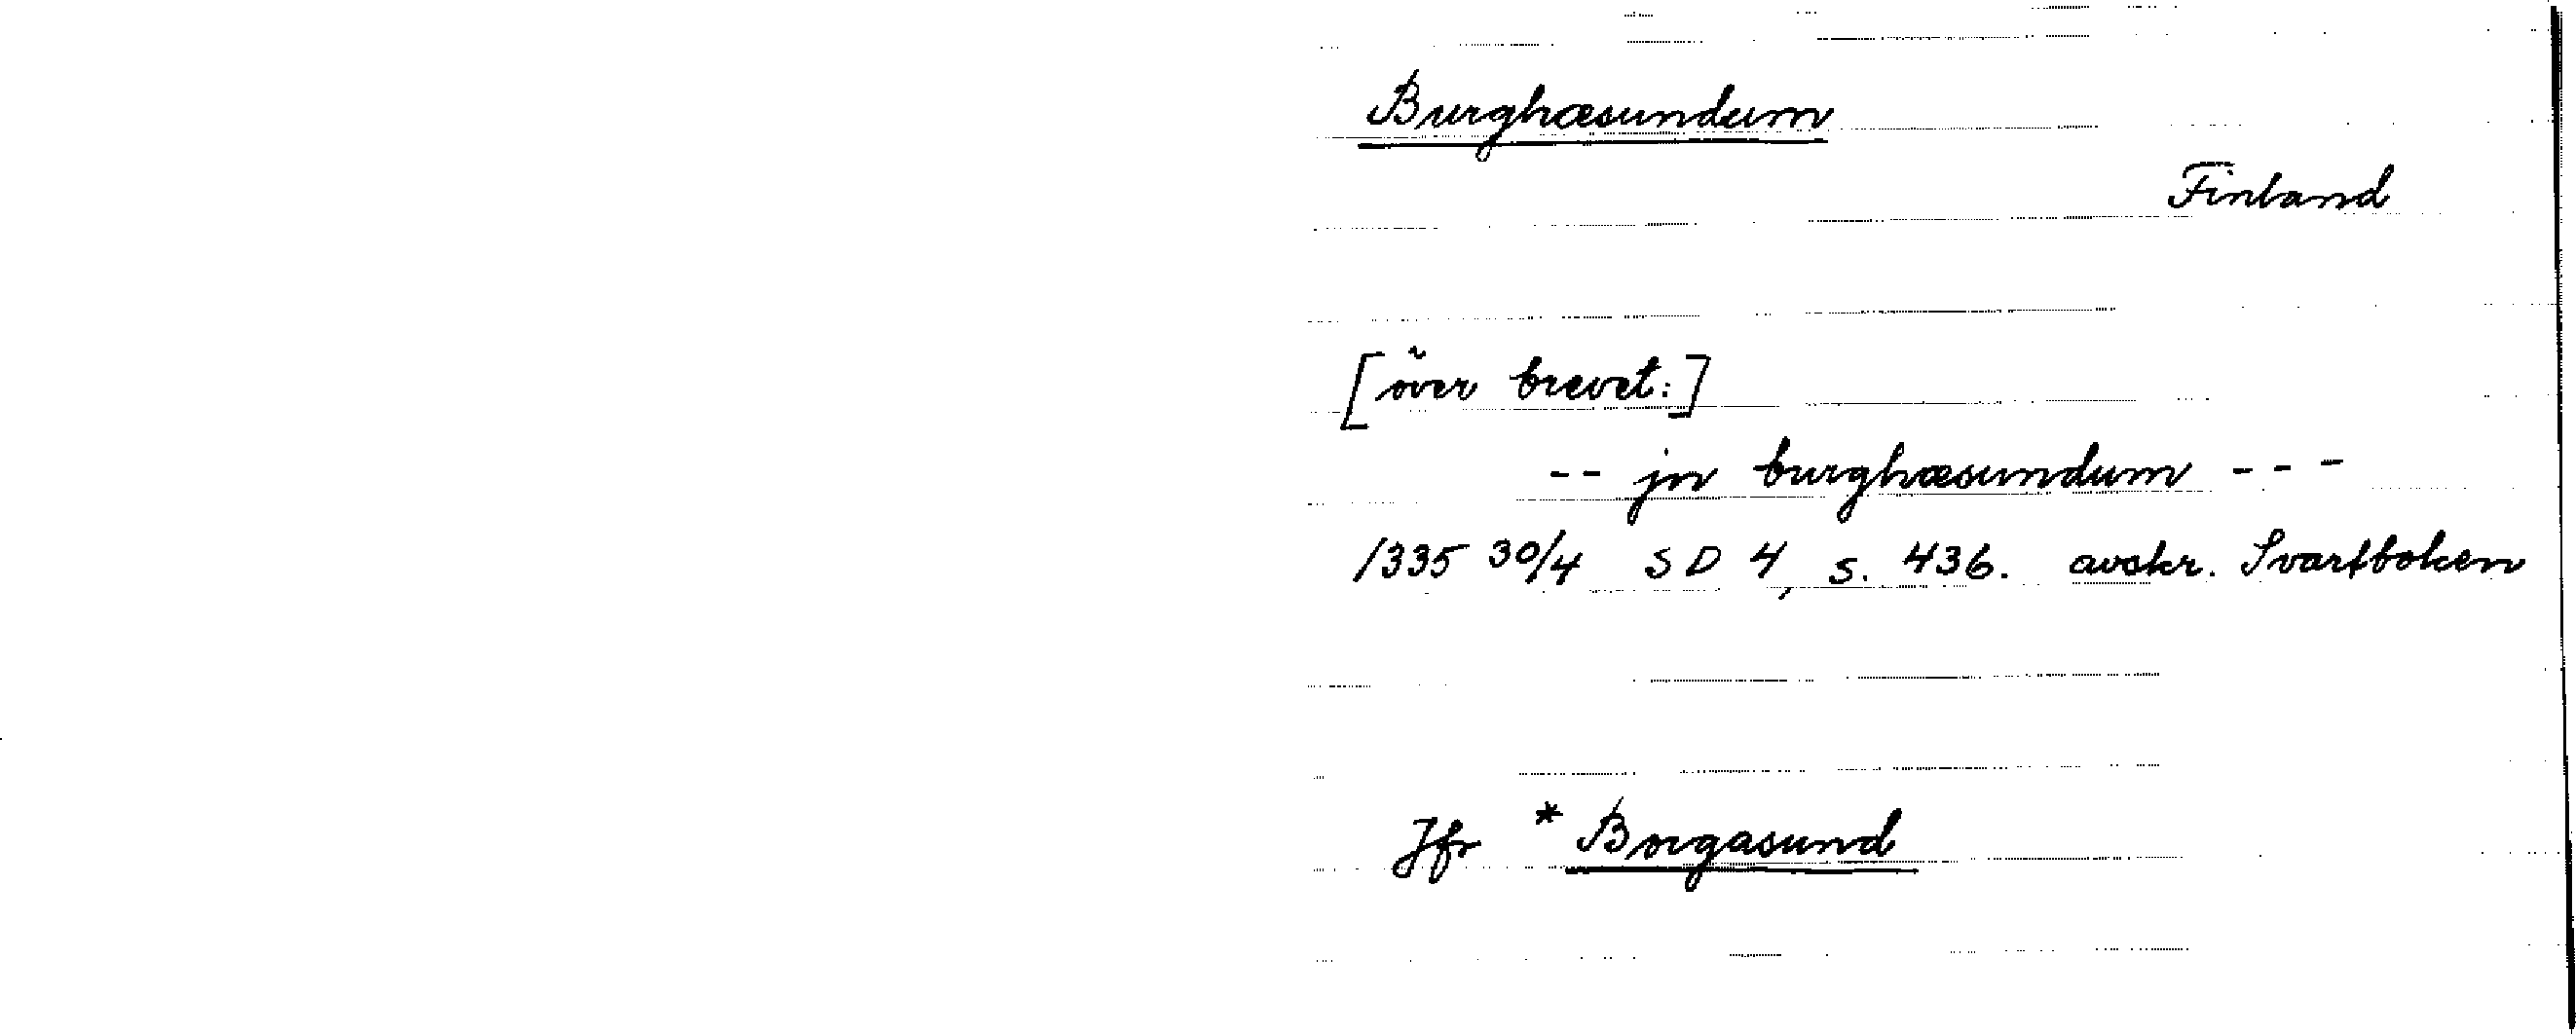 Burghæsundum
Finland
[över brevet:]
-- jn burghæsundum ---
1335 30/4 SD 4, s. 436. avskr. Svartboken
Jfr *Borgasund